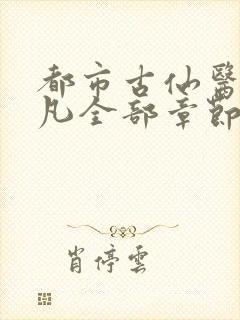 都市古仙醫
凡全部章節
肖停雲